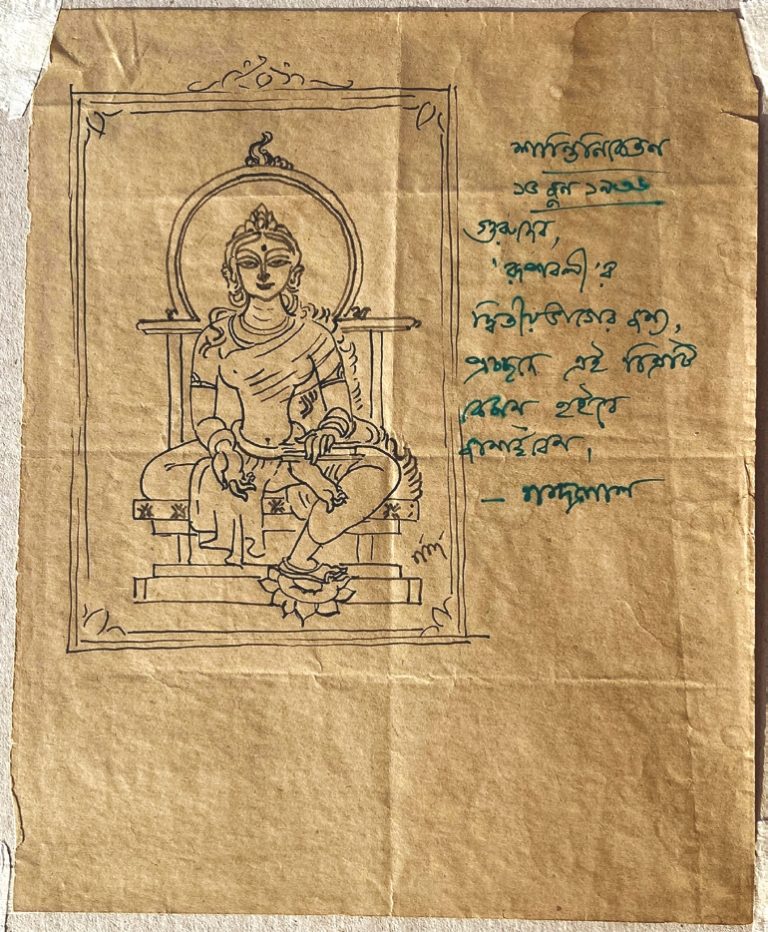 শান্তিনিকেতন
১৫ জুন ১৯৩৬
গুরুদেব,
'রূপাবলী'র
দ্বিতীয়ভাগের জন্য,
প্রচ্ছদে এই চিত্রটি
কেমন হইবে
জানাইবেন,
– নন্দলাল
নন্দ